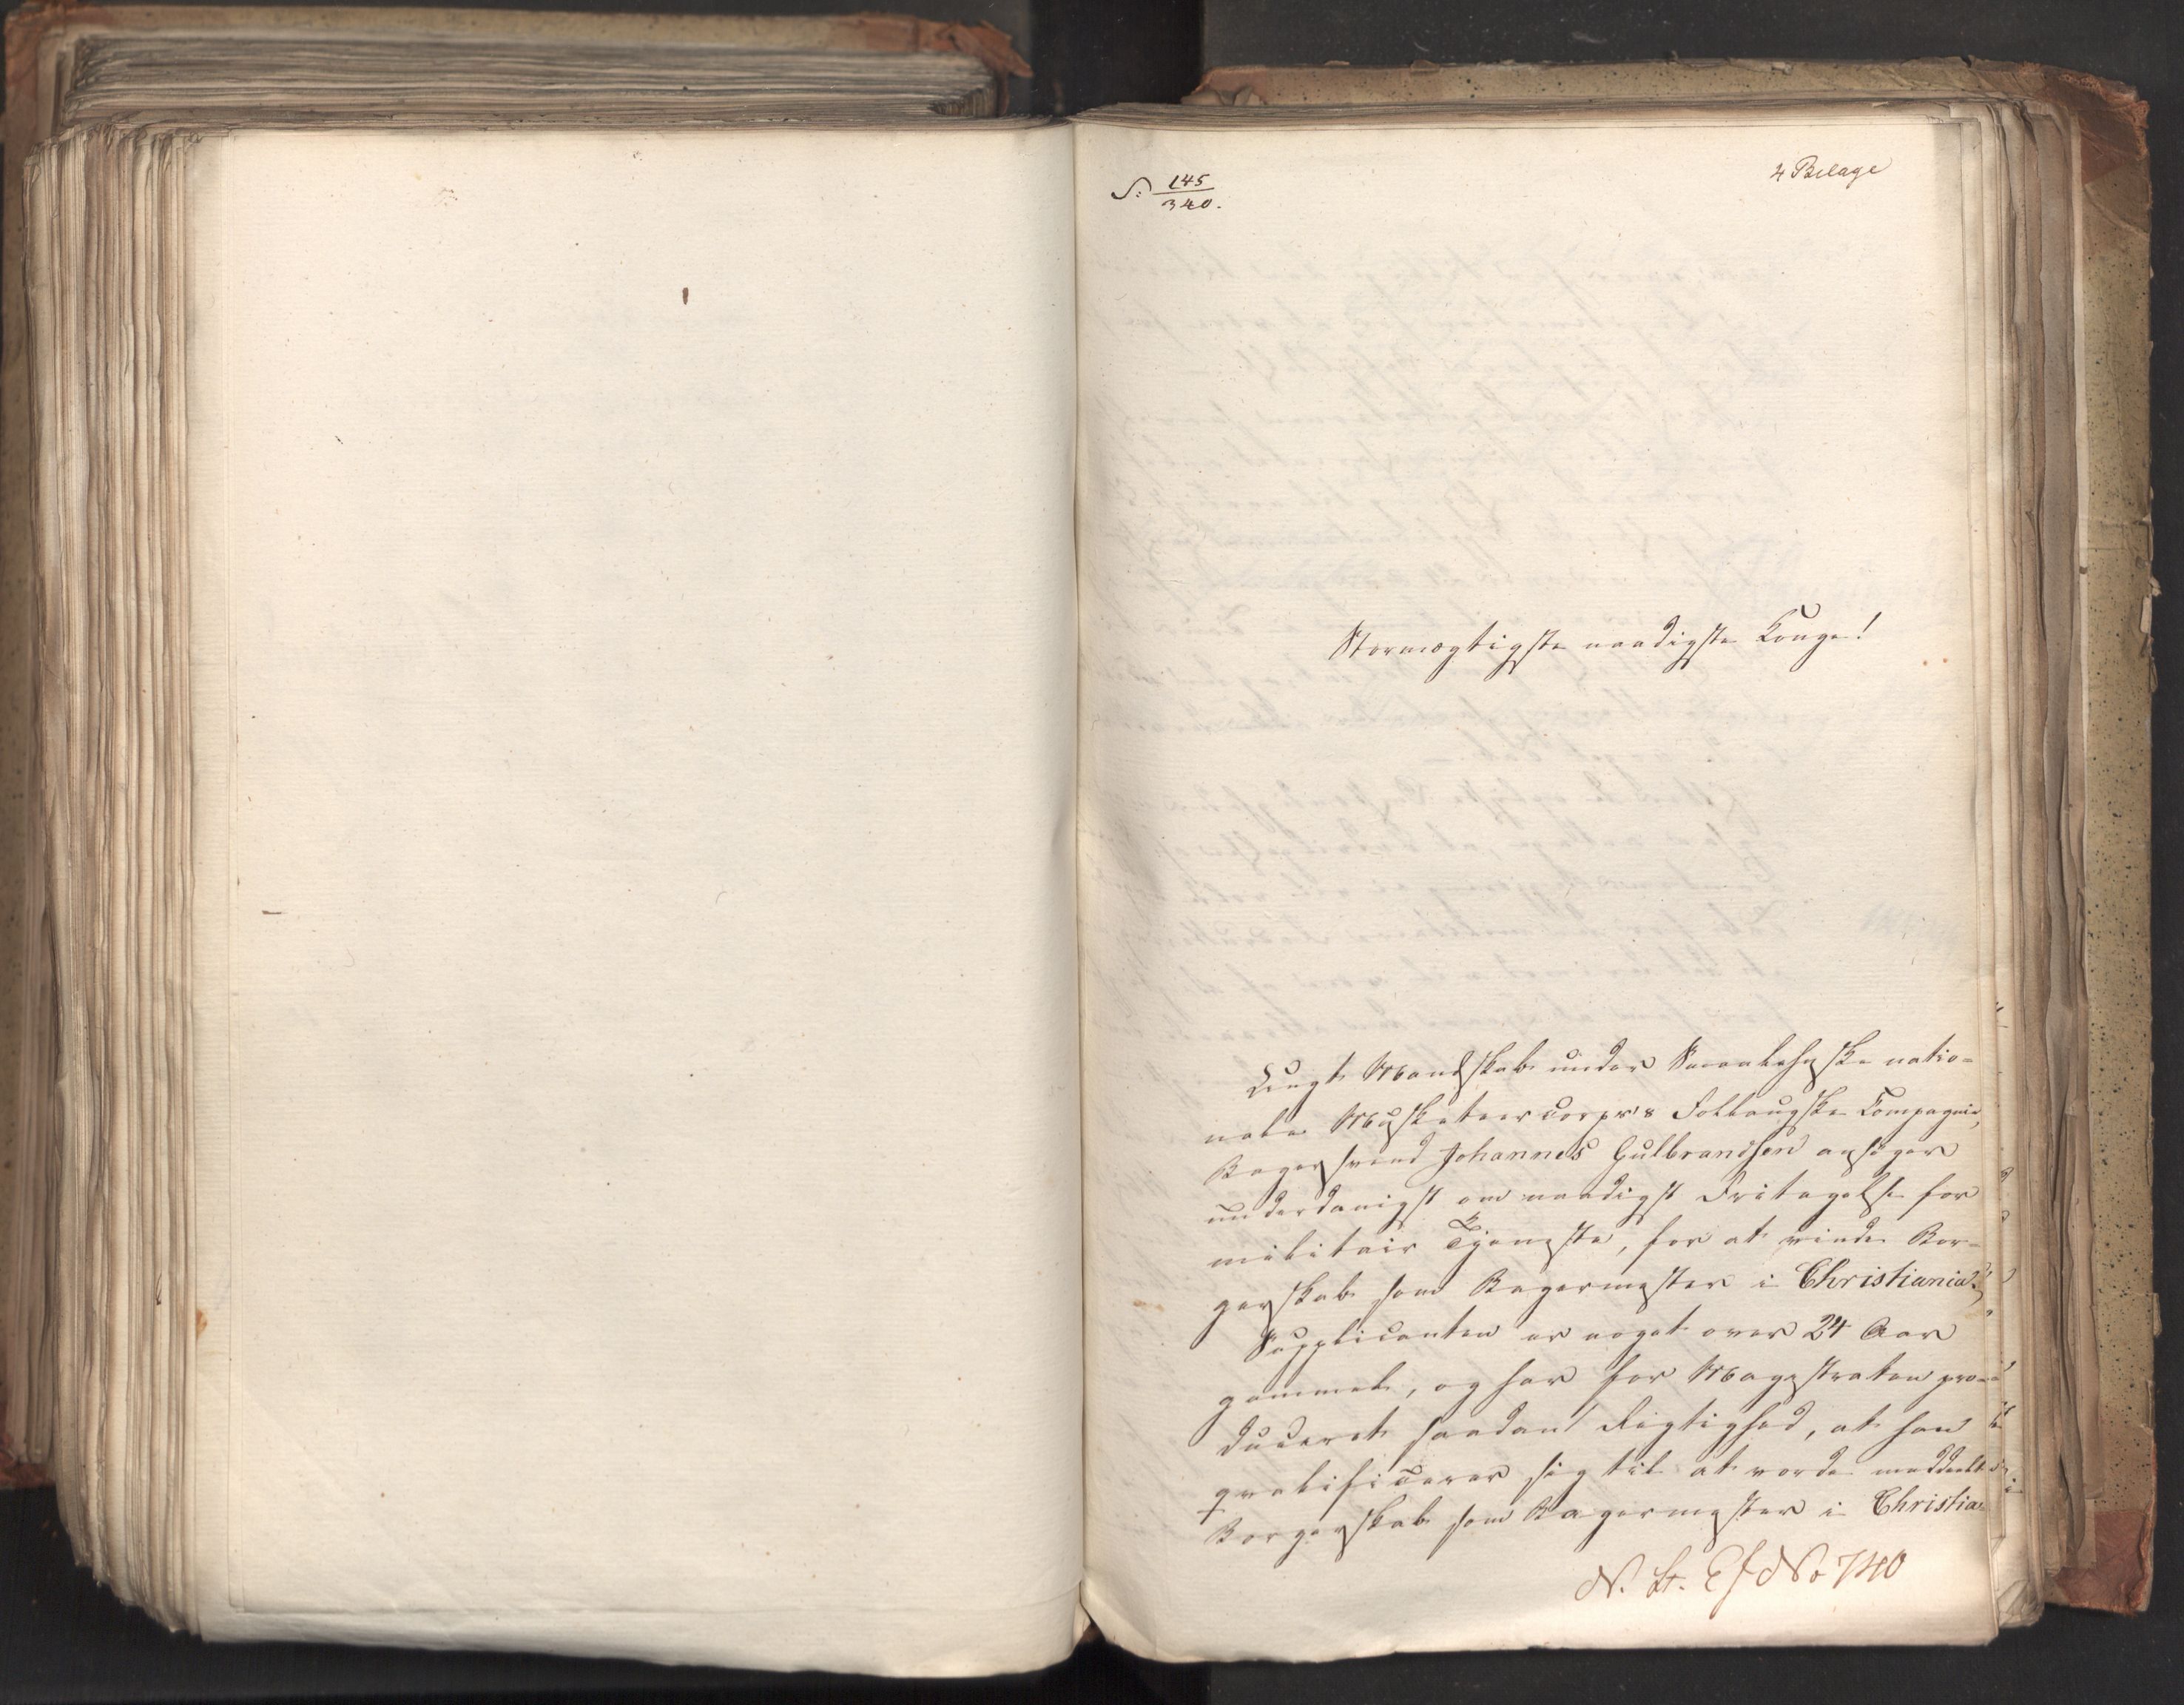 S: 145/340.
4 Bilage
Stormægtigste naadigste Konge!
Lægt Mandskab under Smaalehnske natio-
nale Musketeercorps's Follougske Compagnie,
Bagersvend Johannes Gulbrandsen ansøger
underdanigst om naadigst Fritagelse for
militair Tjeneste, for at vinde Bor-
gerskab som Bagermester i Christiania.
Supplicanten er noget over 24 Aar
gammel, og har for Magistraten pro-
duceret saadan Rigtighed, at han
qvalificerer sig til at vorde meddeelt
Borgerskab som Bagermester i Christia-
No 740